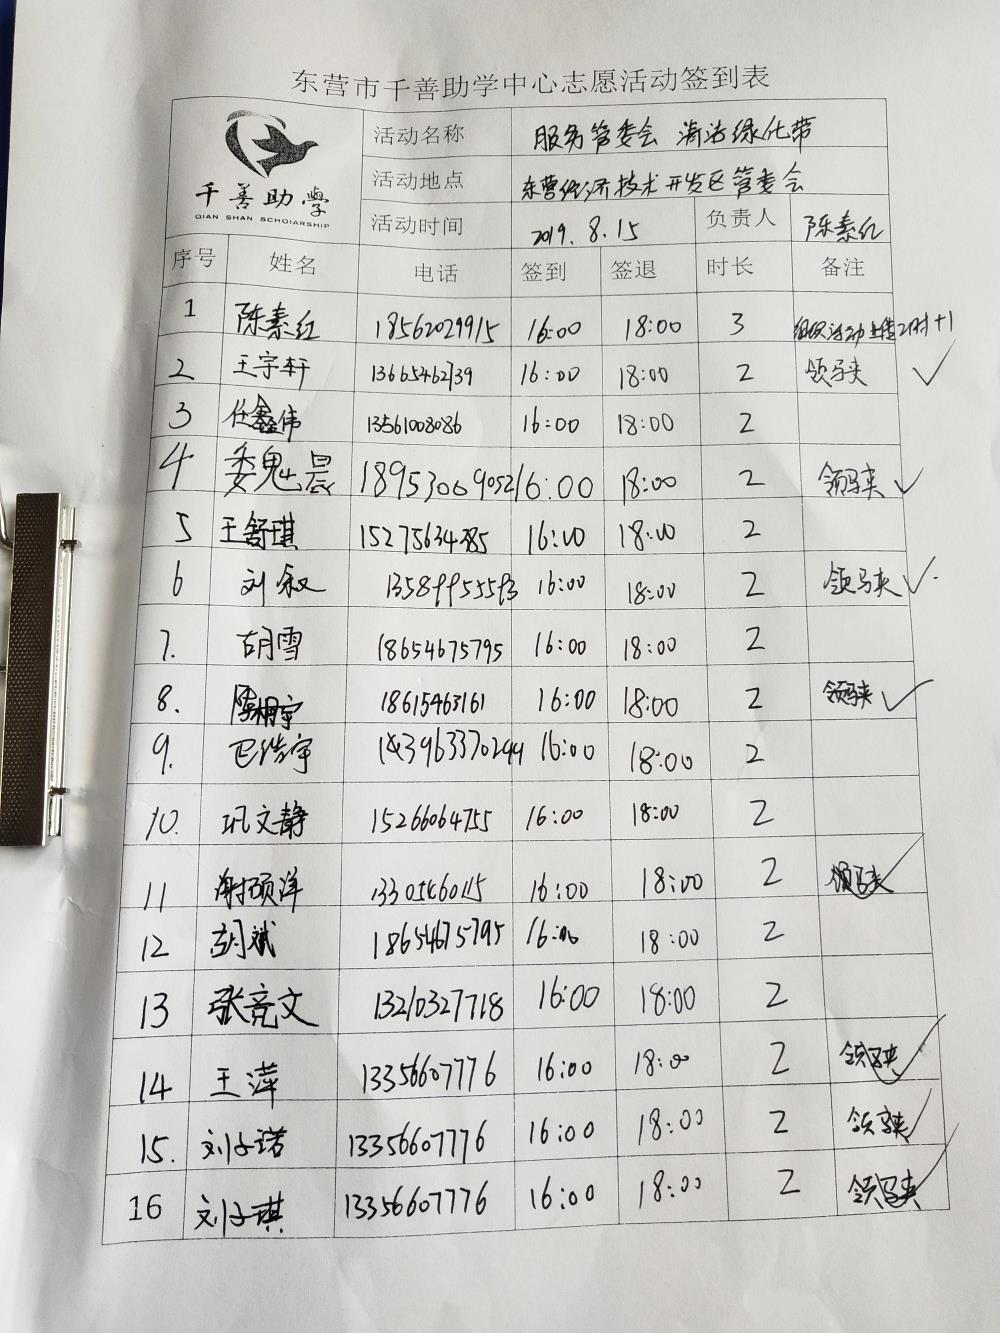 东营市千善助学中心志愿活动签到表
千善助學
QIAN SHAN SCHOIARSHIP
活动名称 服务管委会 清洁绿化带
活动地点 东营经济技术开发区管委会
活动时间 2019.8.15 负责人 陈素红
序号 姓名 电话 签到 签退 时长 备注
1 陈素红 18562029915 16:00 18:00 3 组织活动上传2小时+1
2 王宇轩 13665462139 16:00 18:00 2 领马夹 ✓
3 任鑫伟 13561008086 16:00 18:00 2
4 委魁晨 18953069052 16:00 18:00 2 领马夹 ✓
5 王舒琪 15275634385 16:00 18:00 2
6 刘叙 16:00 18:00 2 领马夹 ✓
7. 胡雪 18654675795 16:00 18:00 2
8. 陈栩宇 18615463161 16:00 18:00 2 领马夹 ✓
9. 巴浩宇 16:00 18:00 2
10. 巩文静 15266064755 16:00 18:00 2
11 谢硕洋 16:00 18:00 2 领马夹 ✓
12 胡斌 18654675795 16:00 18:00 2
13 张亮文 13210327718 16:00 18:00 2
14 王萍 13356607776 16:00 18:00 2 领马夹 ✓
15. 刘子诺 13356607776 16:00 18:00 2 领马夹 ✓
16 刘子琪 13356607776 16:00 18:00 2 领马夹 ✓